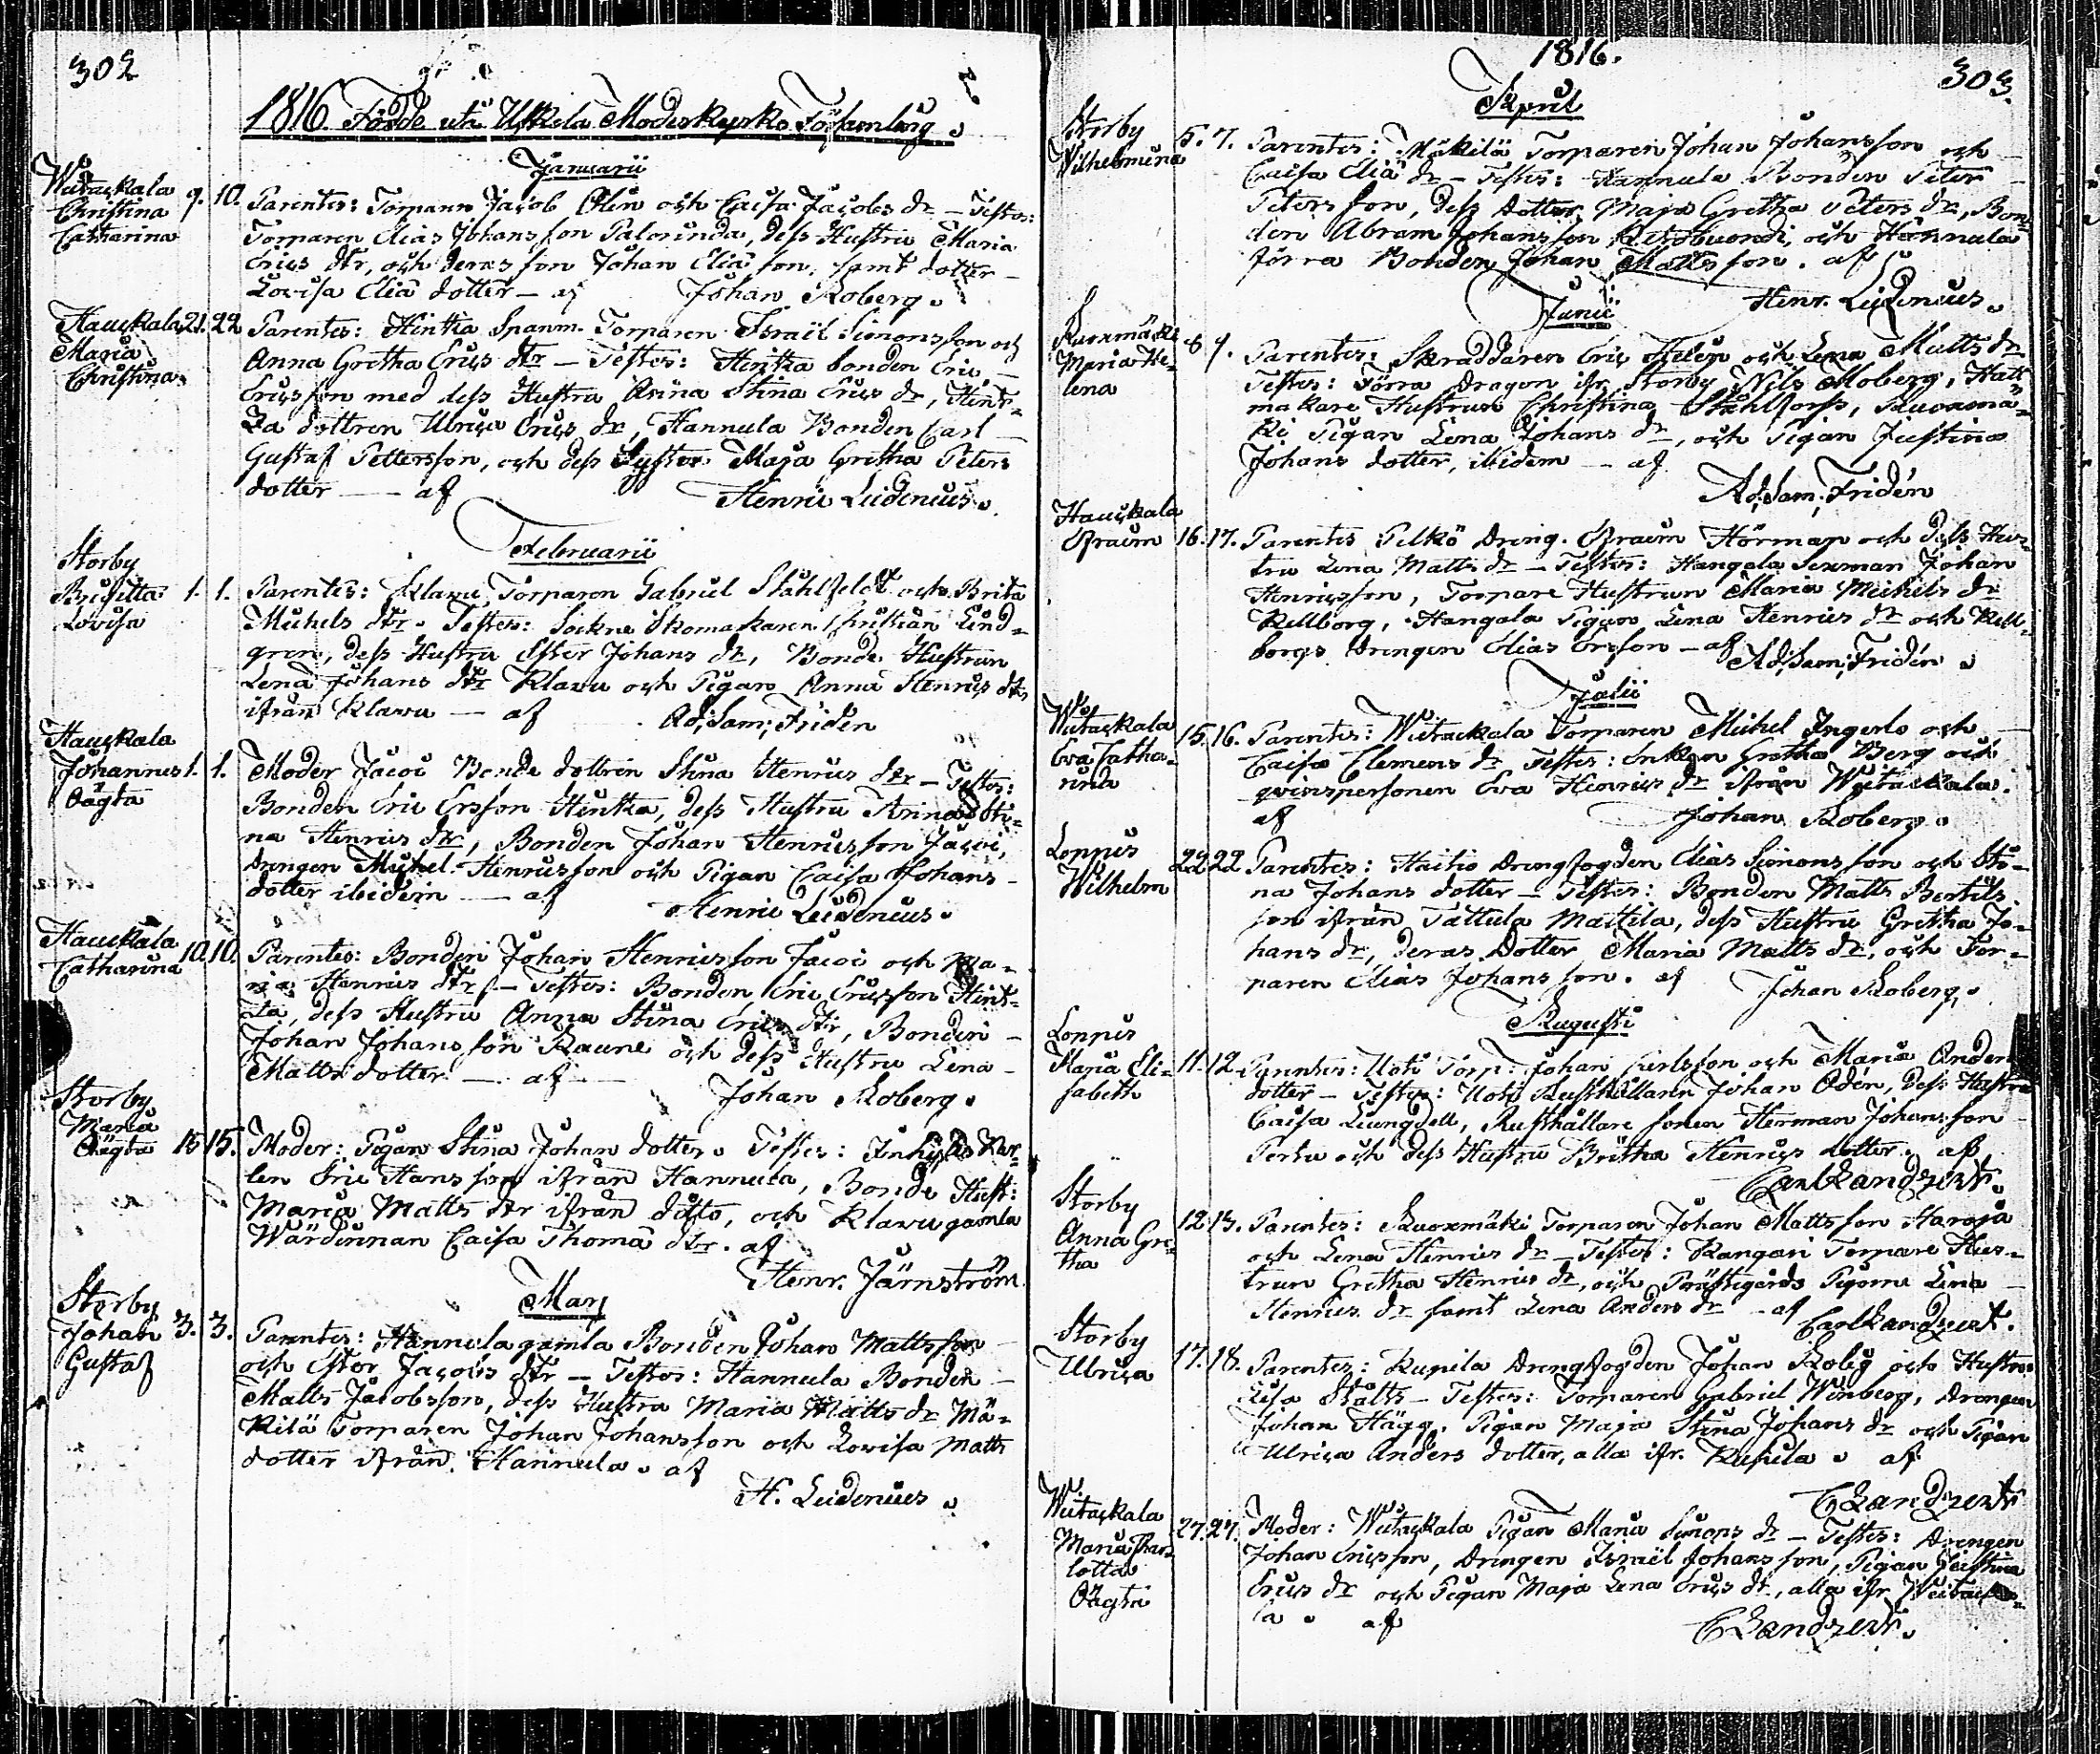 302
1816 Födde uti Uskela Moderkyrko Församling.
Januarii
Wiitaskala
Christina
Catharina
9. 10. Parentes: Torparen Jacob Olin och Caisa Jacobs dr — Testes:
Torparen Elias Johansson Palorinda, dess Hustru Maria
Erics dtr, och deras son Johan Eliä son, samt dotter
Lovisa Eliä dotter — af Johan Roberg.
Hauskala
Maria
Christina
21. 22. Parentes: Hintka Spanm. Torparen Israil Simonsson och
Anna Gretha Erics dtr — Testes: Hintka bonden Eric
Ericsson med dess Hustru Anna Stina Erics dr, Hint-
ka dottren Ulrica Erics dr, Hannula Bonden Carl
Gustaf Pettersson, och dess Syster Maja Gretha Peters
dotter — af Henric Leidenius.
Februarii
Storby
Brigitta
Lovisa
1. 1. Parentes: Klavu Torparen Gabriel Stahlfelt och Brita
Michels dtr. Testes: Sockne Skomakaren Christian Lind-
gren, dess Hustru Ester Johans dr, Bonde Hustrun
Lena Johans dtr Klavu och Pigan Anna Henrics dtr
ifrån Klavu — af Ad; Sam; Fridén
Hauskala
Johannes
Oägta
1. 1. Moder Jacoi Bonde dottren Stina Henrics dtr — Testes:
Bonden Eric Ersson Hintka, dess Hustru Anna Sti-
na Henrics dtr, Bonden Johan Henricsson Jacoi,
drengen Michel Henricsson och Pigan Caisa Johans
dotter ibidem — af Henric Leidenius.
Hauskala
Catharina
10. 10. Parentes: Bonden Johan Henricsson Jacoi och Ma-
ria Henrics dtr — Testes: Bonden Eric Ericsson Hint-
ka, dess Hustru Anna Stina Erics dtr, Bonden
Johan Johansson Raune och dess Hustru Lena
Matts dotter — af — Johan Roberg.
Storby
Maria
Oägta
15 15. Moder: Pigan Stina Johan dotter. Testes: Inhyses Kar-
len Eric Hansson ifrån Hannula, Bonde Hust:
Maria Matts dtr ifrån ditto, och Klavu gamla
Wärdinnan Caisa Thomä dtr. af
Henr. Järnström
Marj
Storby
Johan
Gustaf
3. 3. Parentes: Hannula gamla Bonden Johan Mattsson
och Ester Jacobs dtr — Testes: Hannula Bonden
Matts Jacobsson, dess Hustru Maria Matts dr Mä-
kilä Torparen Johan Johansson och Lovisa Matts
dotter ifrån Hannula. af
H. Leidenius.
1816.
303.
April
Storby
Wilhelmina
5. 7. Parentes: Mäkilä Torparen Johan Johansson och
Caisa Eliä dr — Testes: Hannula Bonden Peter
Petersson, dess dotter Maja Gretha Peters dr, Bon-
den Abram Johansson och Hannula
förra Bonden Johan Mattsson. af
Henr. Leidenius.
Junii
Kuoxmäki
Maria He-
lena
8 9. Parentes: Skräddaren Eric Helén och Lena Matts dr
Testes: Förra Dragon ifr. Storby Nils Moberg, Hatt-
makare Hustrun Christina Ståhlfors, Kuoxmä-
ki Pigan Lena Johans dr, och Pigan Justina
Johans dotter, ibidem — af
Ad; Sam; Fridén
Hauskala
Efraim
16. 17. Parentes Pelkö Dreng. Efraim Hörman och dess Hus-
tru Lena Matts dr — Testes: Hangala Sexman Johan
Henricsson, Torpare Hustrun Maria Michels dr
Kellborg, Hangala Pigan Lena Henrics dr och Kell-
borgs Drengen Elias Ersson — af Ad; Sam; Fridén.
Julii
Wiitaskala
Eva Catha-
rina
15. 16. Parentes: Wiitaskala Torparen Michel Ingerlo och
Caisa Clemens dr Testes: Enkan Gretha Berg och
qvinspersonen Eva Henrics dr ifrån Wiitaskala.
af Johan Roberg.
Lonnus
Wilhelm
22 22 Parentes: Haitio Drengfogden Elias Simonsson och Sti-
na Johans dotter — Testes: Bonden Matts Bertils
son ifrån Tattula Mattila, dess Hustru Gretha Jo-
hans dr, deras Dotter Maria Matts dr, och Tor-
paren Elias Johansson. af Johan Roberg.
Augusti
Lonnus
Maria Eli-
sabeth
11. 12. Parentes: Uoti Torp: Johan Carlsson och Maria Anders
dotter — Testes: Uoti Rusthållaren Johan Odén, dess Hustru
Caisa Liungdell, Rusthållare sonen Herman Johansson
Perttu och dess Hustru Britha Henrics dotter. af
Carl Landzert.
Storby
Anna Gre-
tha
12 13. Parentes: Kuoxmäki Torparen Johan Mattsson Haroja
och Lena Henrics dr — Testes: Kangari Torpare Hus-
trun Gretha Henrics dr, och Prästegårds Pigorna Lena
Henrics dr samt Lena Anders dr — af Carl Landzert.
Storby
Ulrica
17. 18. Parentes: Kupila drengfogden Johan Robig och Hustru
Lisa Stålts — Testes: Torparen Gabriel Winberg, Drengen
Johan Hägg, Pigan Maja Stina Johans dr och Pigan
Ulrica Anders dotter, alla ifr. Kupila. af
C Landzert
Wiitaskala
Maria Char-
lotta
Oägta
27. 27. Moder: Wiitaskala Pigan Maria Simons dr — Testes: Drengen
Johan Ericsson, Drengen Israil Johansson, Pigan Justina
Erics dr och Pigan Maja Lena Erics dr, alla ifr. Wiitaska-
la. af C Landzert.